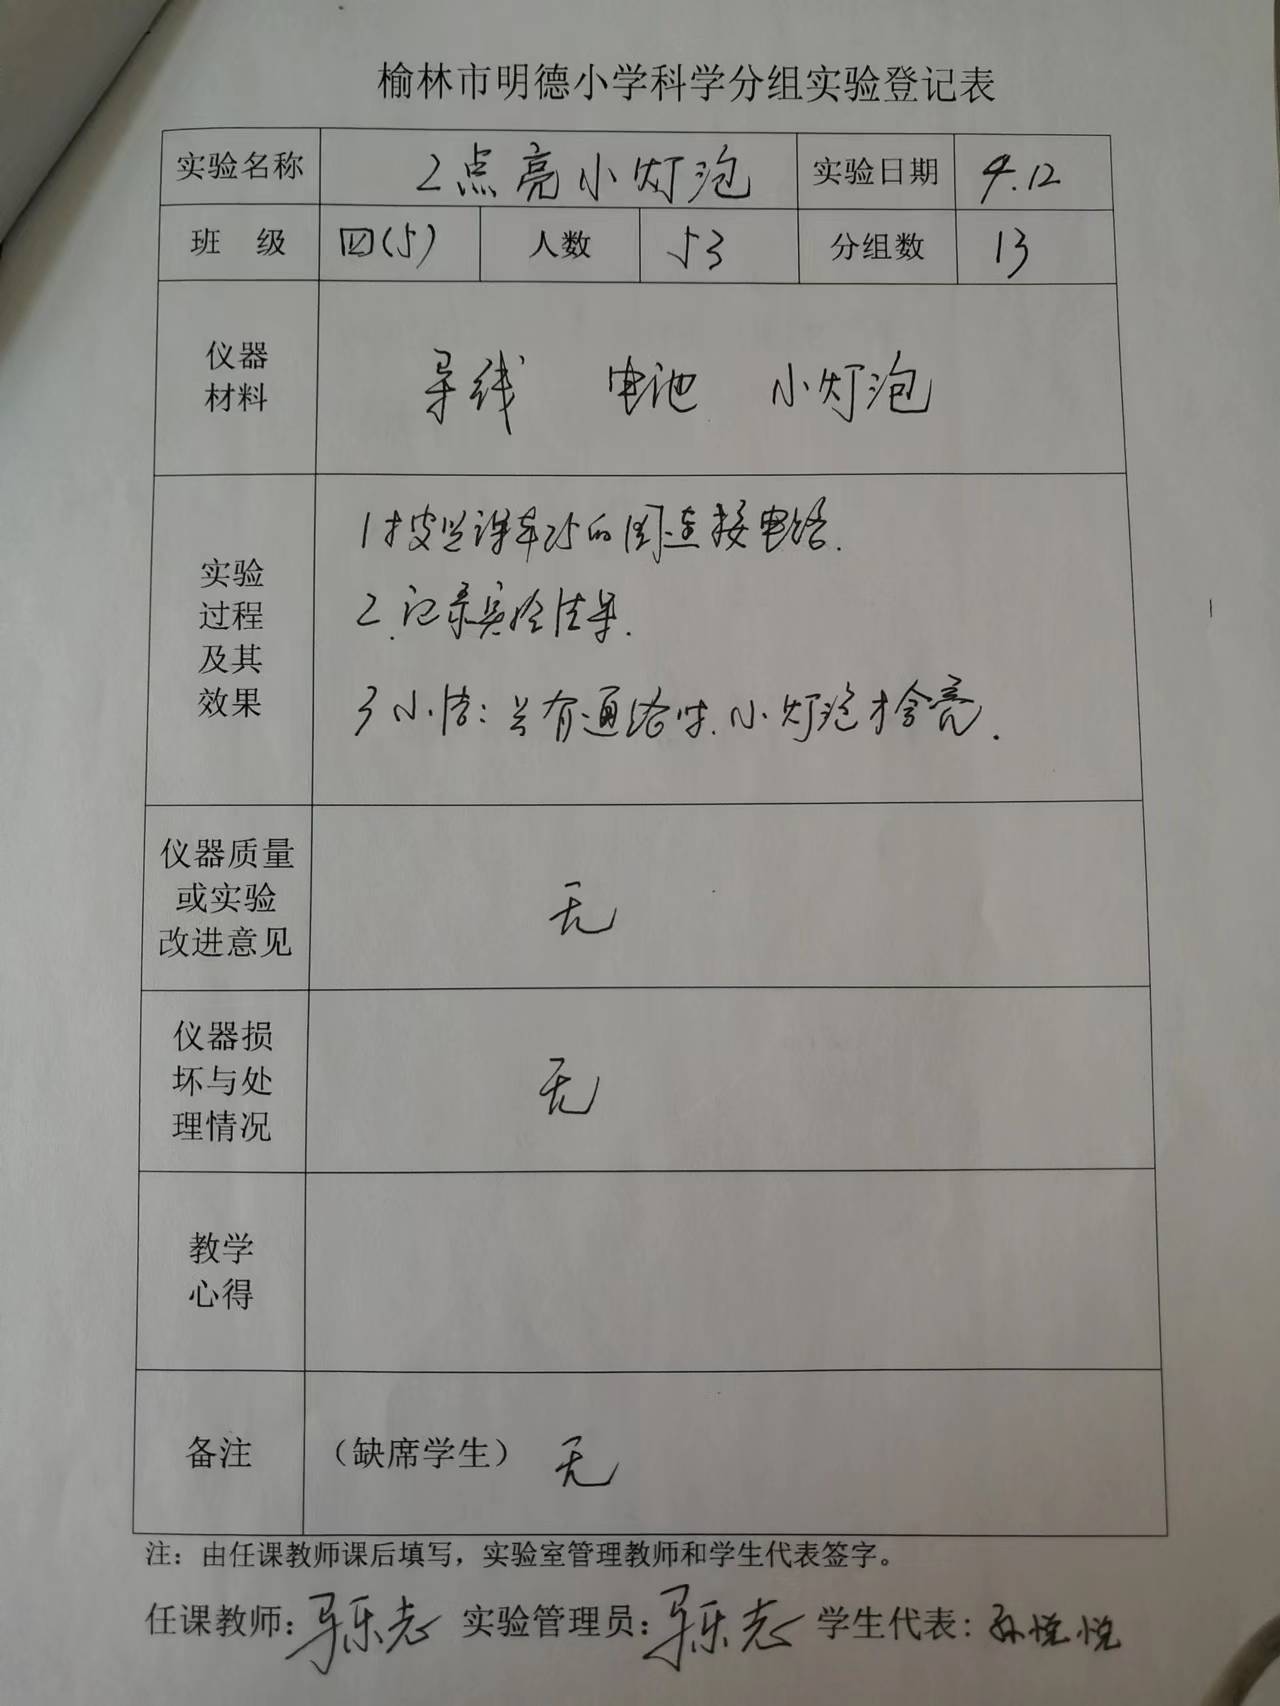 榆林市明德小学科学分组实验登记表
实验名称 2点亮小灯泡 实验日期 4.12
班 级 四(5) 人数 53 分组数 13
仪器
材料
导线 电池 小灯泡
实验
过程
及其
效果
1按照课本25的图连接电路.
2.记录实验结果.
3小结:只有通路时.小灯泡才会亮.
仪器质量
或实验
改进意见
无
仪器损
坏与处
理情况
无
教学
心得
备注 (缺席学生) 无
注:由任课教师课后填写,实验室管理教师和学生代表签字。
任课教师:马乐志 实验管理员:马乐志 学生代表:孙悦悦